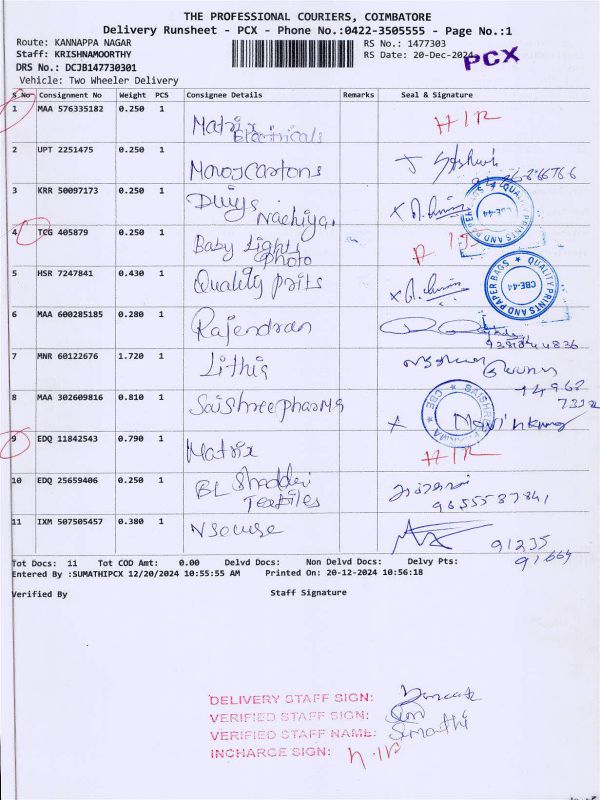 THE PROFESSIONAL COURIERS, COIMBATORE
Delivery Runsheet - PCX - Phone No.:0422-3505555 - Page No.:1
Route: KANNAPPA NAGAR
RS No.: 1477303
Staff: KRISHNAMOORTHY
RS Date: 20-Dec-2024
PCX
DRS No.: DCJB147730301
Vehicle: Two Wheeler Delivery
S No Consignment No Weight PCS Consignee Details Remarks Seal & Signature
1 MAA 576335182 0.250 1 Matrix Electricals HIR
2 UPT 2251475 0.250 1
3 KRR 50097173 0.250 1 Nachiyar
4 TCG 405879 0.250 1 Baby Lights Photo
5 HSR 7247841 0.430 1 Quality prits
QUALITY PRINTS AND PAPER BAGS ★ CBE-44
QUALITY PRINTS AND PAPER BAGS ★ CBE-44
6 MAA 600285185 0.280 1 Rajendran
7 MNR 60122676 1.720 1 Lithis
8 MAA 302609816 0.810 1 Saishreepharma
CBE
9 EDQ 11842543 0.790 1 Matrix HIR
10 EDQ 25659406 0.250 1 BL Textiles
11 IXM 507505457 0.380 1 91235
Tot Docs: 11 Tot COD Amt: 0.00 Delvd Docs: Non Delvd Docs: Delvy Pts:
Entered By :SUMATHIPCX 12/20/2024 10:55:55 AM Printed On: 20-12-2024 10:56:18
Verified By Staff Signature
DELIVERY STAFF SIGN:
VERIFIED STAFF SIGN:
VERIFIED STAFF NAME: Sumathi
INCHARCE SIGN: